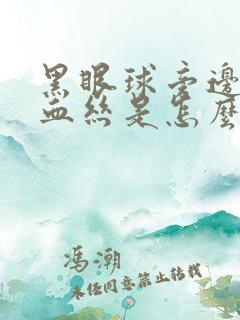 黑眼球旁边
血丝是怎么
冯潮
未经同意禁止转载